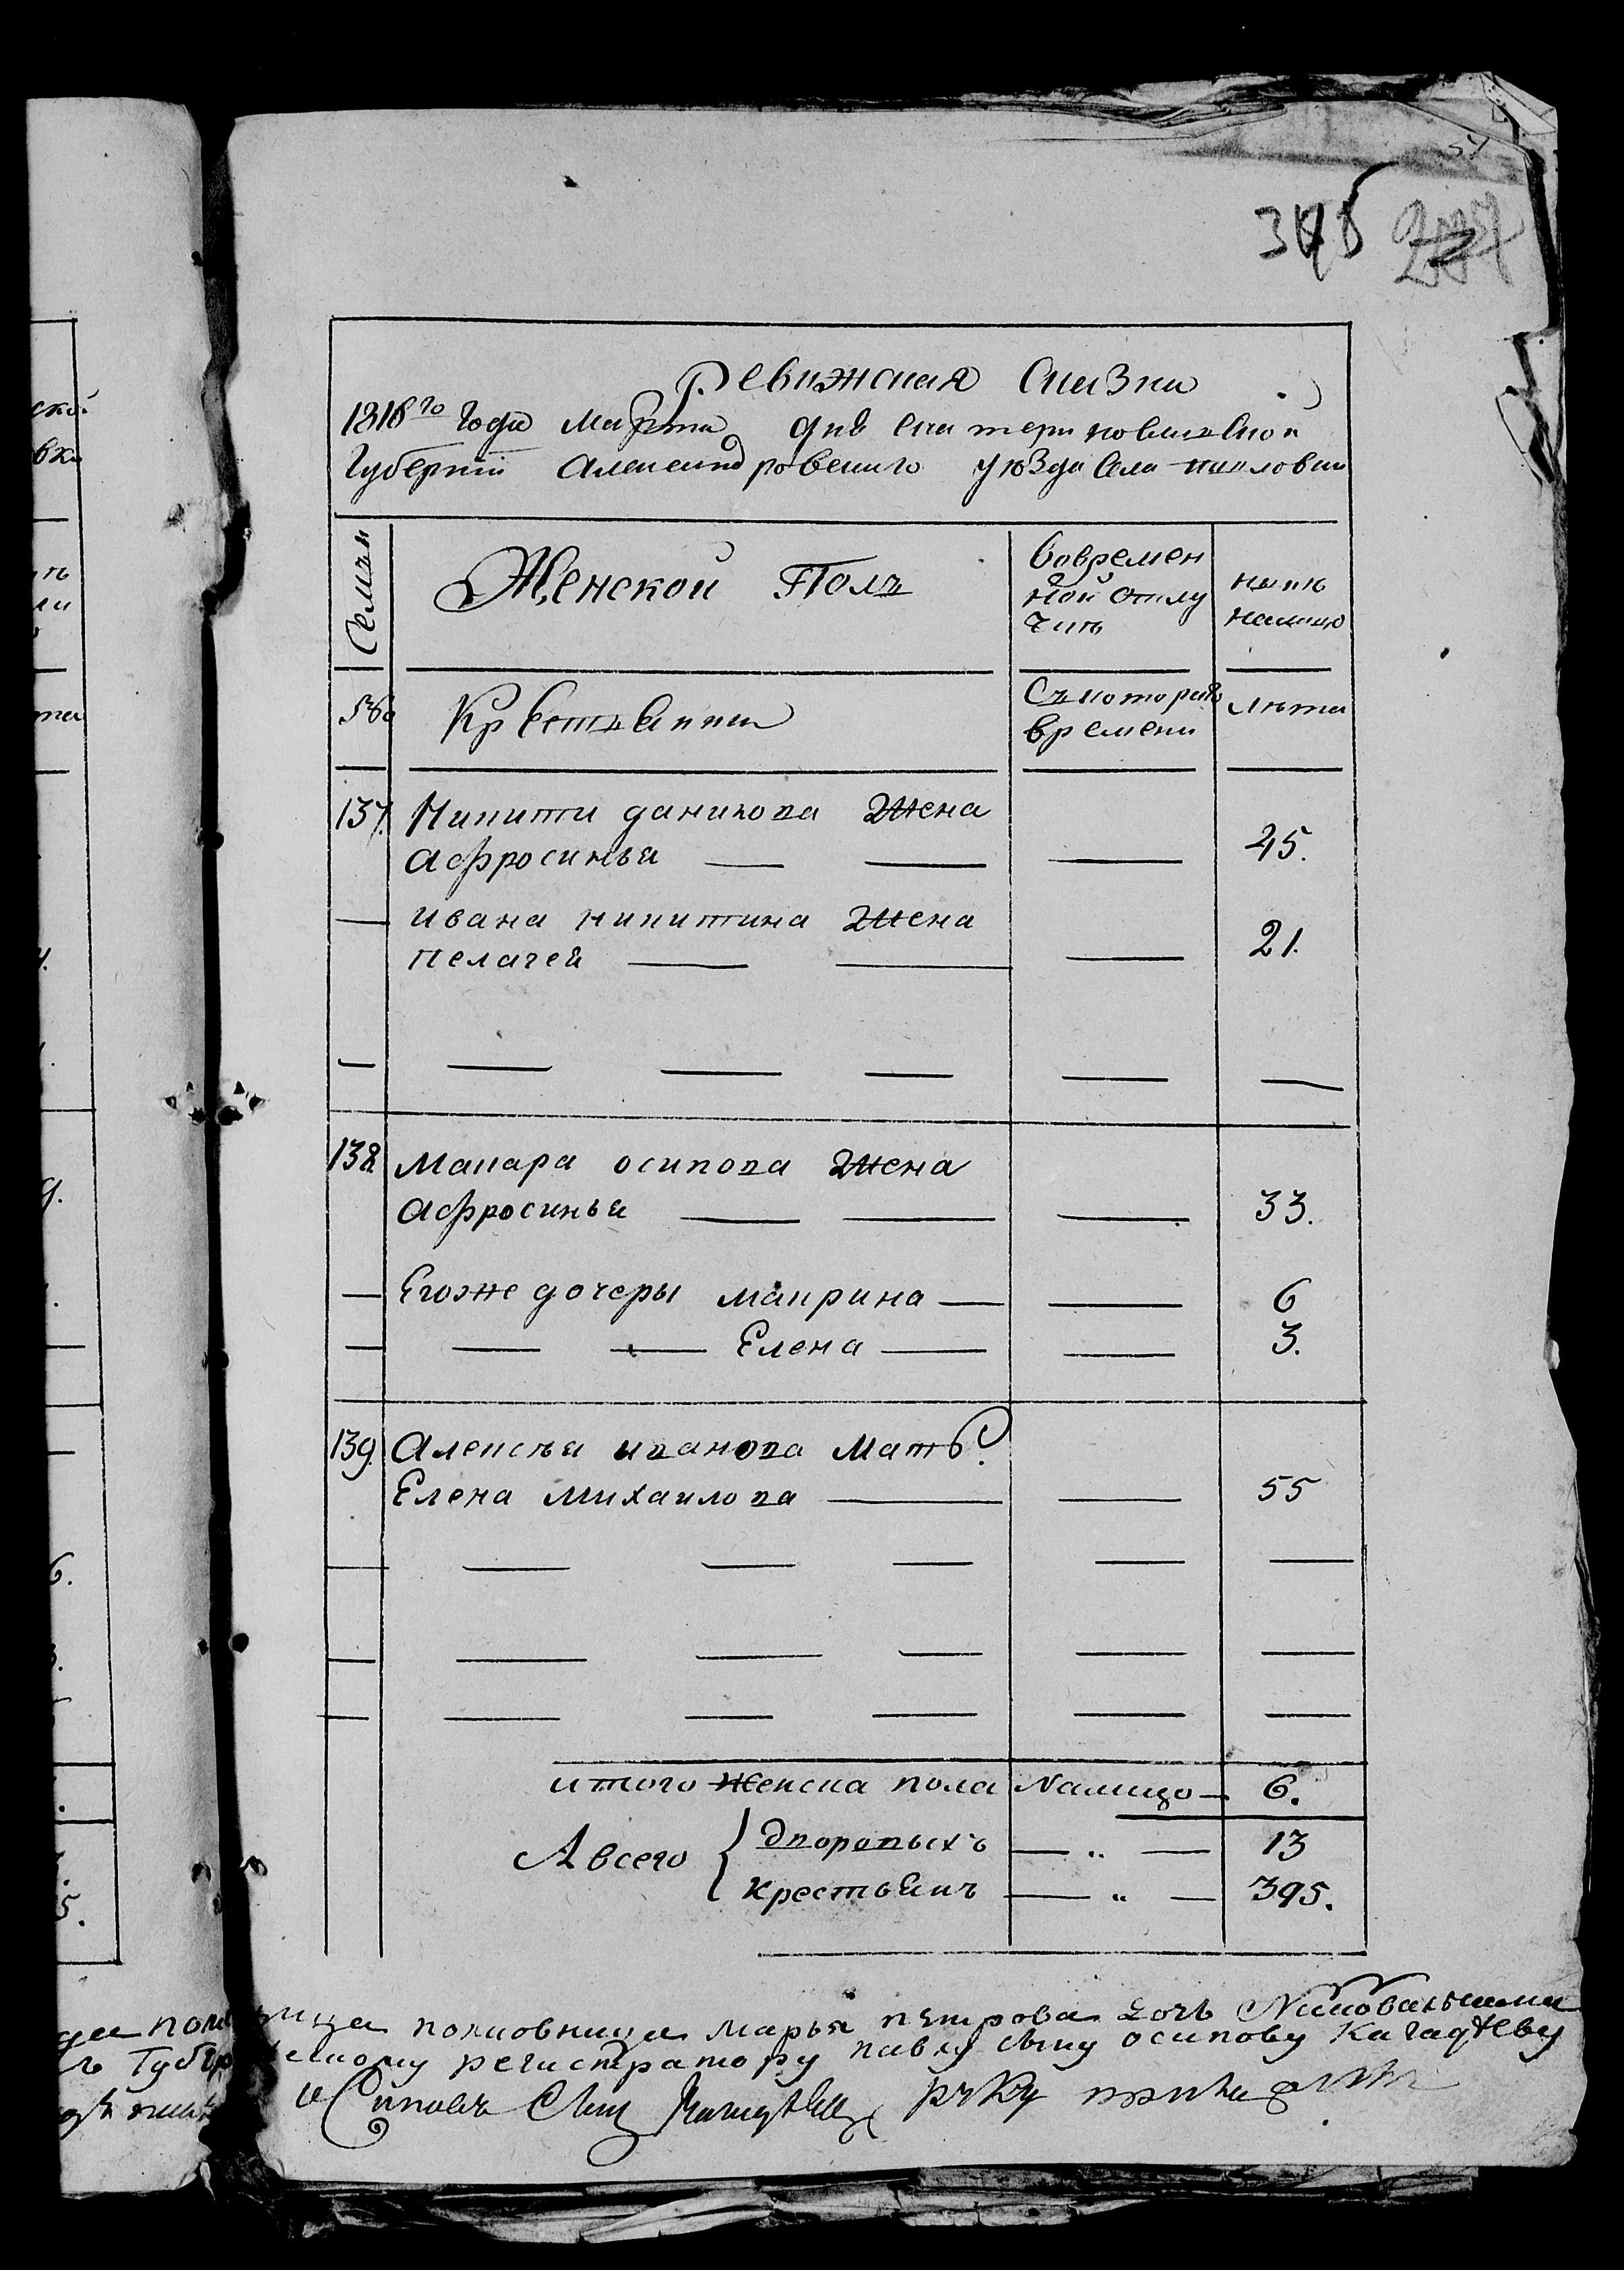 Ревижская Сказка
1818го Года Марта дня Екатеринославской
Губернїи Александровскаго уѣзда Села павловки
Семьи
Женской Полъ
Вовремен
ной отлу
чкѣ
нынѣ
налицо
№
Крестьянки
Съкотораго
времени
лѣта
137. Никити данилова Жена
Афросинья 45.
Ивана никитина Жена
Пелагея 21.
138. Макара осипова Жена
Афросинья 33.
Егоже дочеры маирина 6
Елена 3.
139. Алексѣя иванова Мать
Елена Михаилова 55
итого женска пола Налицо 6.
А всего
дворовыхъ „ 13
крестьянъ „ 395.
полковница Марья петрова дочь
регистратору павлу сыну осипову
Сынъ руку